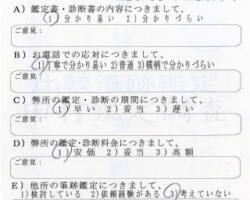 A) 鑑定書・診断書の内容につきまして、
1)分かり易い 2)分かりづらい
ご意見:
B) お電話での応対につきまして、
1)丁寧で分かり易い 2)普通 3)横柄で分かりづらい
ご意見:
C) 弊所の鑑定・診断の期間につきまして、
1)早い 2)妥当 3)遅い
ご意見:
D) 弊所の鑑定・診断料金につきまして、
1)安価 2)妥当 3)高額
ご意見:
E) 他所の筆跡鑑定につきまして、
1)検討している 2)依頼経験がある 3)考えていない